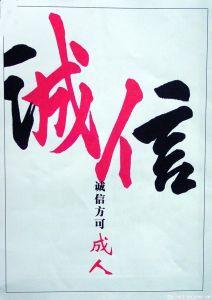 诚信
诚信方可
成人